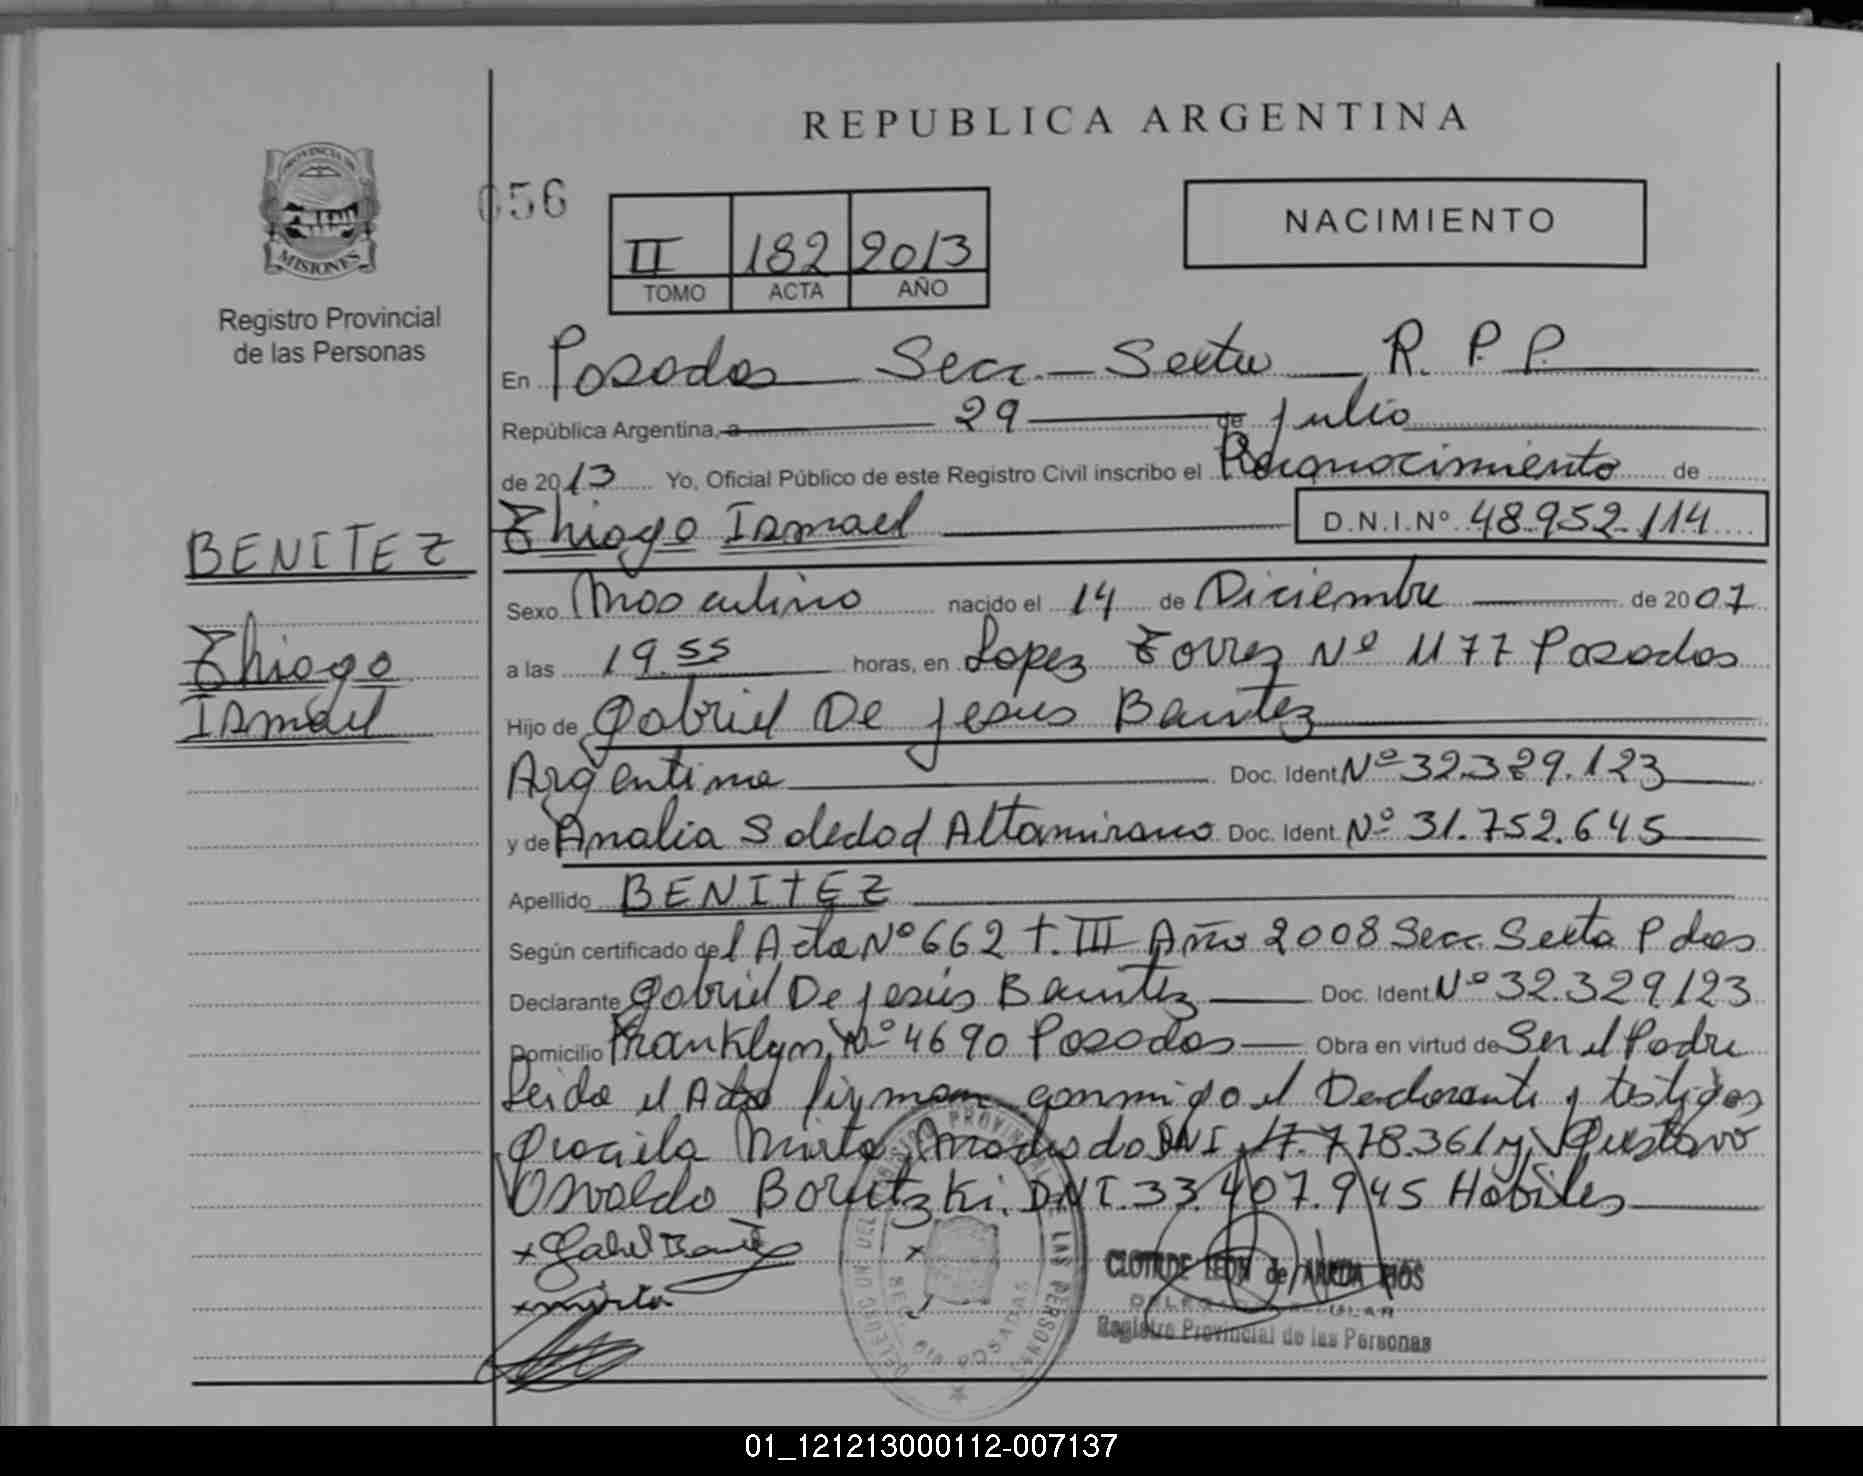 REPUBLICA ARGENTINA
PROVINCIA DE
MISIONES
Registro Provincial
de las Personas
056
II 182 2013
TOMO ACTA AÑO
NACIMIENTO
En Posadas Secc. Sexta R.P.P.
República Argentina, a 29 de julio
de 2013 Yo, Oficial Público de este Registro Civil inscribo el Reconocimiento de
Thiago Ismael D.N.I.Nº 48.952.114
BENITEZ
Thiago
Ismael
Sexo Masculino nacido el 14 de Diciembre de 2007
a las 19.55 horas, en Lopez Torrez Nº 1177 Posadas
Hijo de Gabriel De Jesus Benitez
Argentina Doc. Ident. Nº 32.329.123
y de Analia Soledad Altamirano Doc. Ident. Nº 31.752.645
Apellido BENITEZ
Según certificado del Acta Nº 662 T. III Año 2008 Secc. Sexta Pdas
Declarante Gabriel De Jesús Benitez Doc. Ident. Nº 32.329.123
Domicilio Franklyn Nº 4690 Posadas Obra en virtud de Ser el Padre
Leida el Acta firman conmigo el Declarante y testigos
Graciela Mirta DNI 17.778.361 y Gustavo
Osvaldo Borutzki DNI.33.407.945 Habiles
x Gabriel Benitez
x mirta
CLOTILDE LEON de
Registro Provincial de las Personas
REGISTRO PROVINCIAL DE LAS PERSONAS
POSADAS
01_121213000112-007137